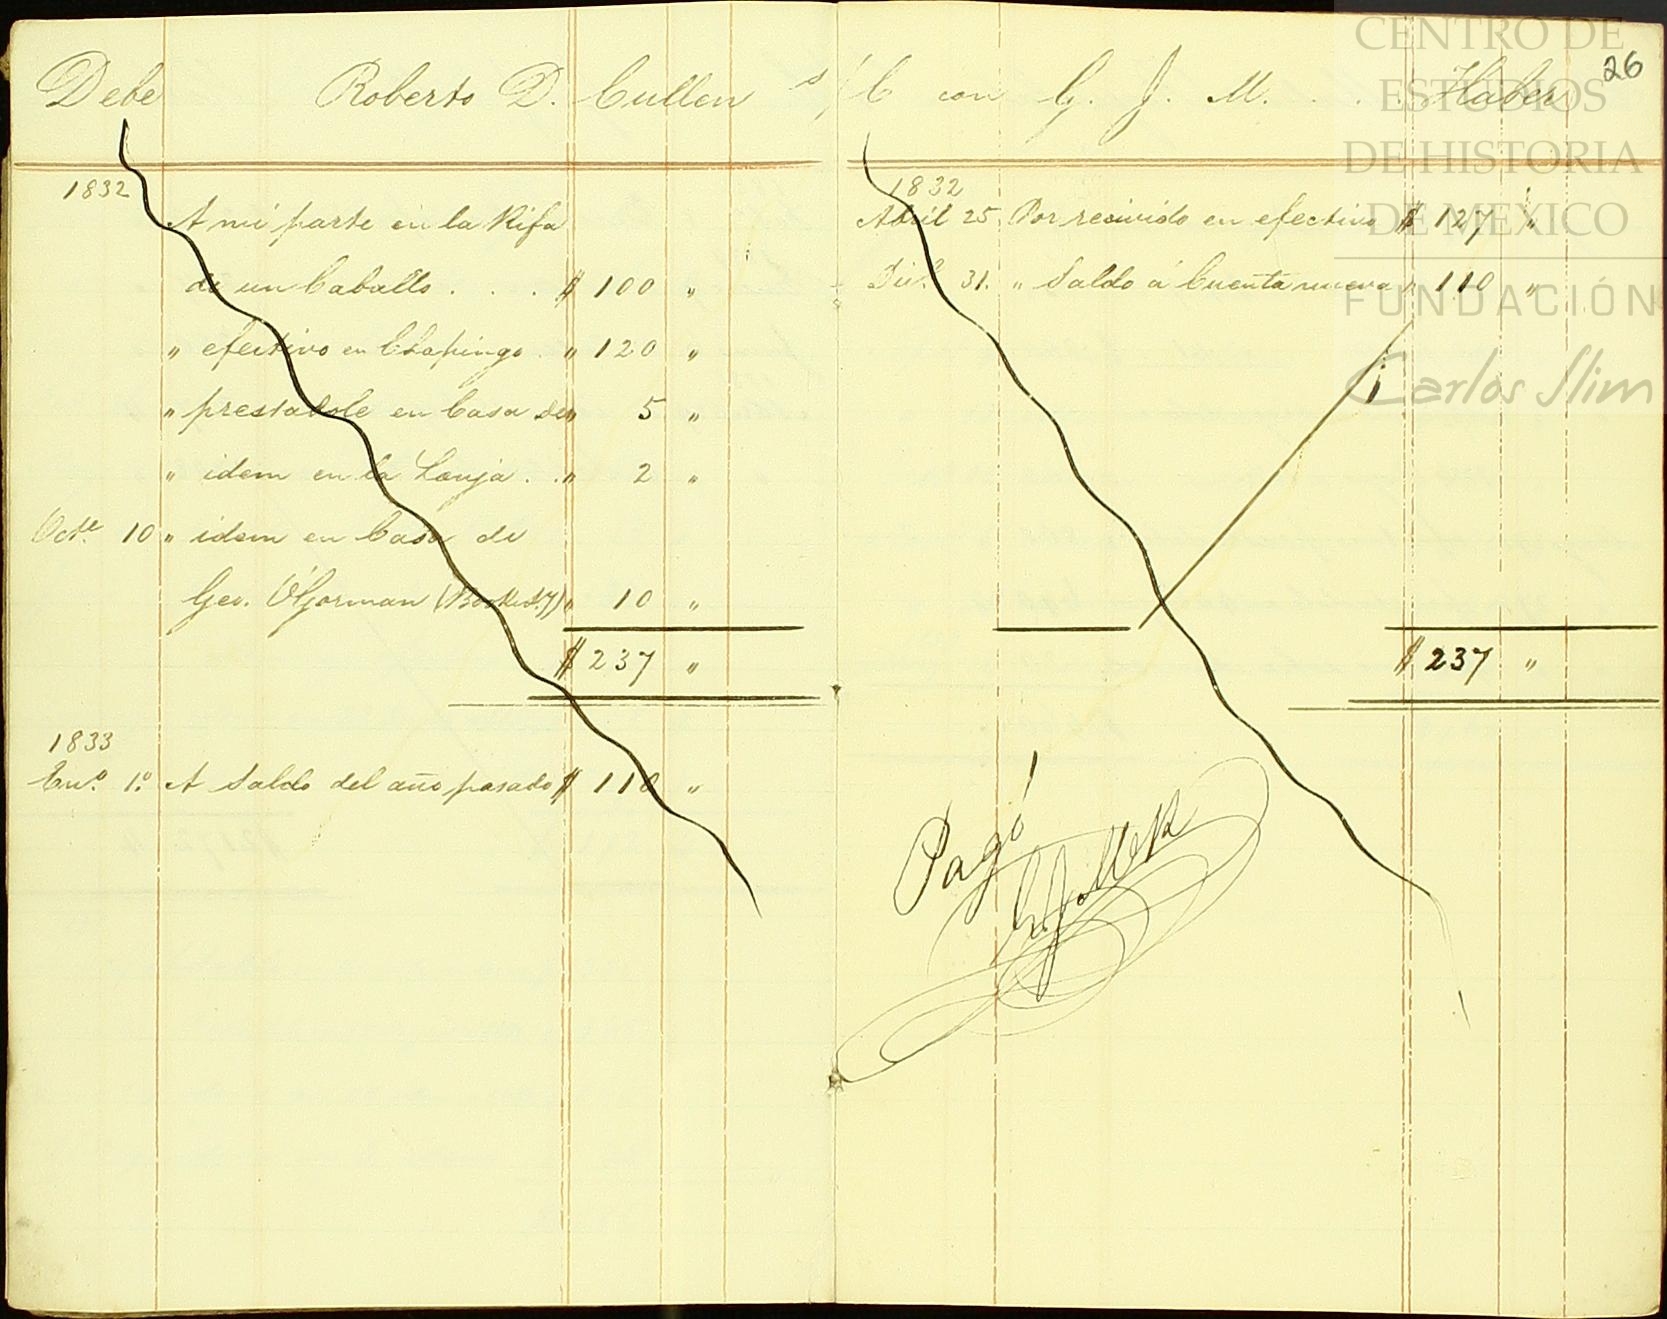 26
Debe Roberto D. Cullen s/C con G. J. M. . . . Haber
1832
A mi parte en la Rifa
de un Caballo . . . $ 100 "
" efectivo en Chapingo . " 120 "
" prestadole en Casa de " 5 "
" idem en la Lonja . . " 2 "
Octe. 10 " idem en Casa de
Geo. O'Gorman " 10 "
$ 237 "
1833
Eno. 1o. A Saldo del año pasado $ 110 "
1832
Abril 25. Por recivido en efectivo $ 127 "
Dic. 31. " Saldo á Cuenta nueva " 110 "
$ 237 "
Pagó
CENTRO DE
ESTUDIOS
DE HISTORIA
DE MEXICO
FUNDACIÓN
Carlos Slim